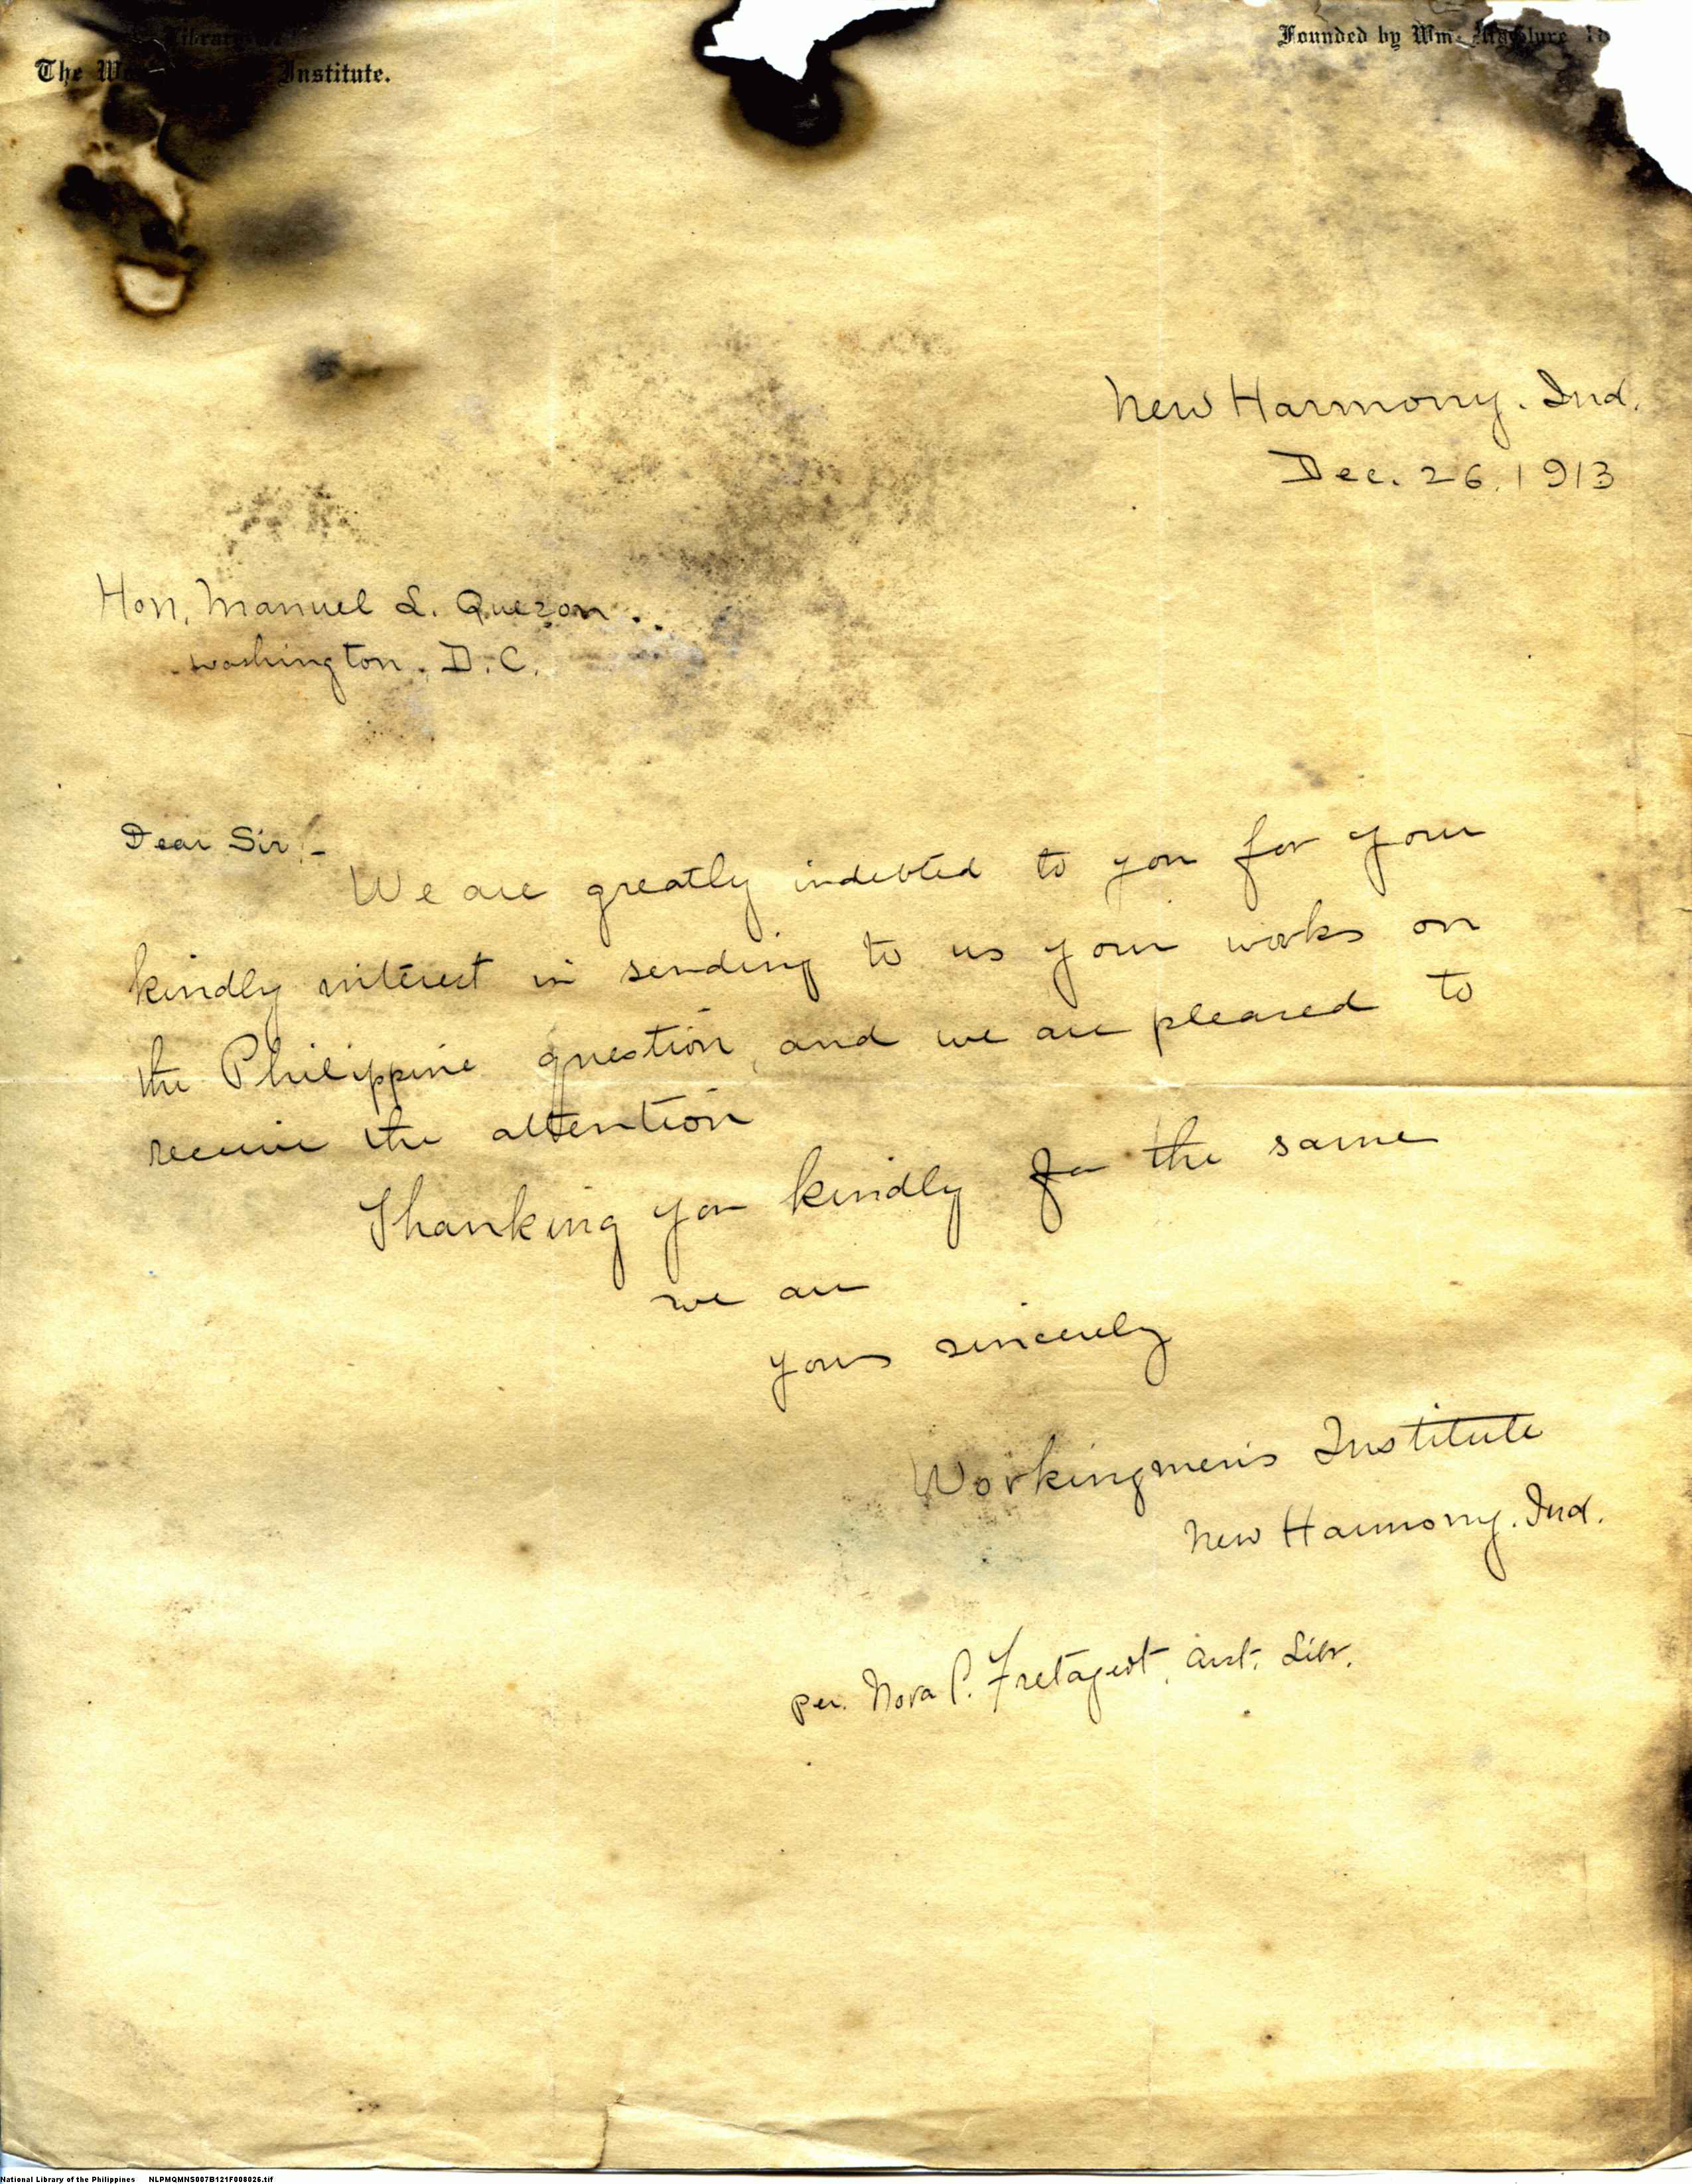 Library of
The Wo Institute.
Founded by Wm. Maclure 18
New Harmony. Ind.
Dec. 26, 1913
Hon. Manuel L. Quezon..
Washington. D.C.
Dear Sir!-
We are greatly indebted to you for your
kindly interest in sending to us your works on
the Philippine question, and we are pleased to
receive the attention
Thanking you kindly for the same
we are
yours sincerely
Workingmen's Institute
New Harmony. Ind.
per. Nora C. Fretageot, asst. Libr.
National Library of the Philippines NLPMQMNS007B121F008026.tif